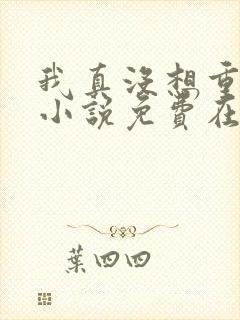 我真没想重
小说免费在
葉四四